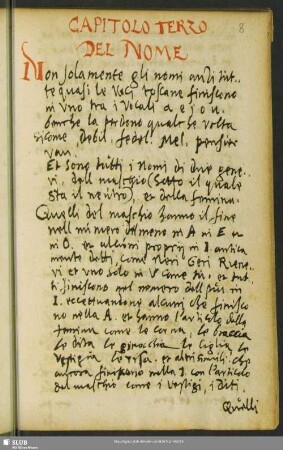 8
CAPITOLO TERZO
DEL NOME
Non solamente gli nomi anzi tut-
te quasi le voci toscane finiscono
in uno tra i vocali a e i o u.
benche la perdono qualche volta
sicome, debil, fedel, Mel, pensier
van.
Et sono tutti i nomi di due gene-
ri, dell maschio (sotto il quale
sta il neutro), et della femina.
Quelli del maschio hanno il fine
nell numero del meno in A in E in
in O. et alcuni proprij in I. antica
mente dotti, come Neri Geri
et uno solo in V come tu. et tut-
ti finiscono nel numero dell più in
I. eccettuandone alcuni che finisco
no nella A. et hanno l'articolo della
femina come le corna, le braccia
le dita le ginocchia le ciglia, le
vestigia le risa. et altri simili che
ancora finiscono nella I. con l'articolo
del maschio come i vestigi, i diti.
Quelli
SLUB